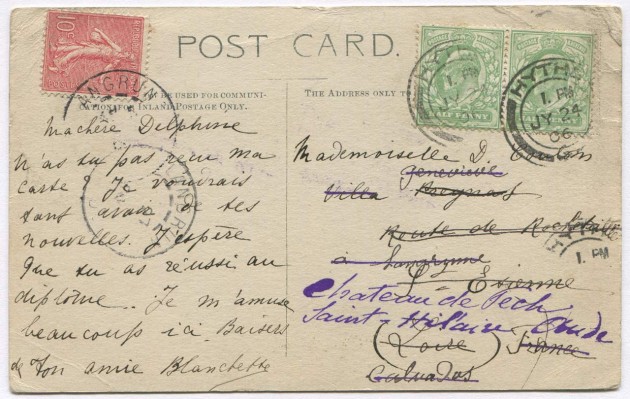 POST CARD.
BE USED FOR COMMUNI-
CATION FOR INLAND POSTAGE ONLY.
THE ADDRESS ONLY
10
HALF PENNY
HYTHE
1. PM
JY 24
06
1. PM
Machère Delphine
N'as tu pas reçu ma
carte? Je voudrais
tant avoir de tes
nouvelles. J'espère
que tu as réussi au
diplôme. Je m'amuse
beaucoup ici. Baisers
de Ton amie Blanchette
Mademoiselle D.
Geneviève
Villa
Route de
à Langrune
St Etienne
Chateau de Pech
Saint-Hilaire Aude
(Loire) France
Calvados